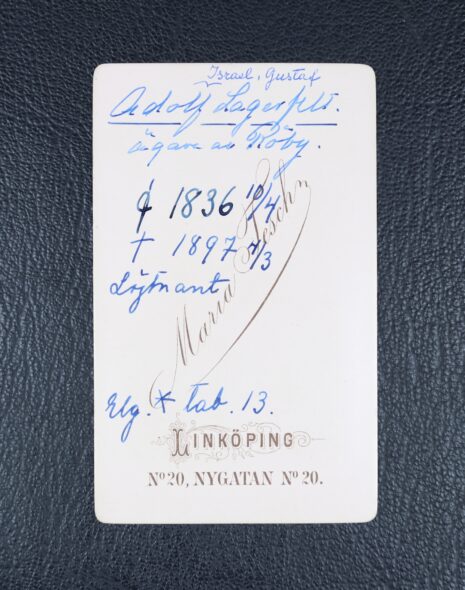 Israel, Gustaf
Adolf Lagerfelt.
ägare av Röby.
1836 10/4
† 1897 7/3
Löjtnant
Maria Tesch
Elg. * tab. 13.
LINKÖPING
Nº 20, NYGATAN Nº 20.